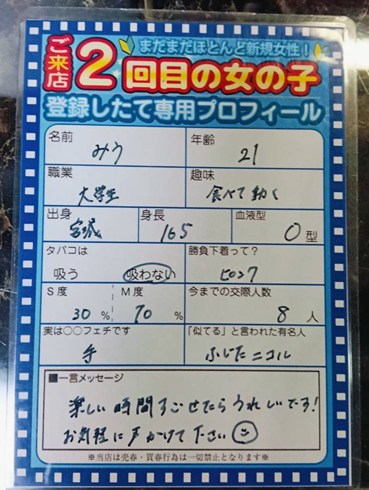 まだまだほとんど新規女性！
ご来店2回目の女の子
登録したて専用プロフィール
名前 みう 年齢 21
職業 大学生 趣味 食べて動く
出身 宮城 身長 165 血液型 O型
タバコは 吸う 吸わない 勝負下着って？ ピンク
S度 30% M度 70% 今までの交際人数 8人
実は○○フェチです 手 「似てる」と言われた有名人 ふじたニコル
■一言メッセージ
楽しい時間すごせたらうれしいです！
お気軽に声かけて下さい
※当店は売春・買春行為は一切禁止となります※